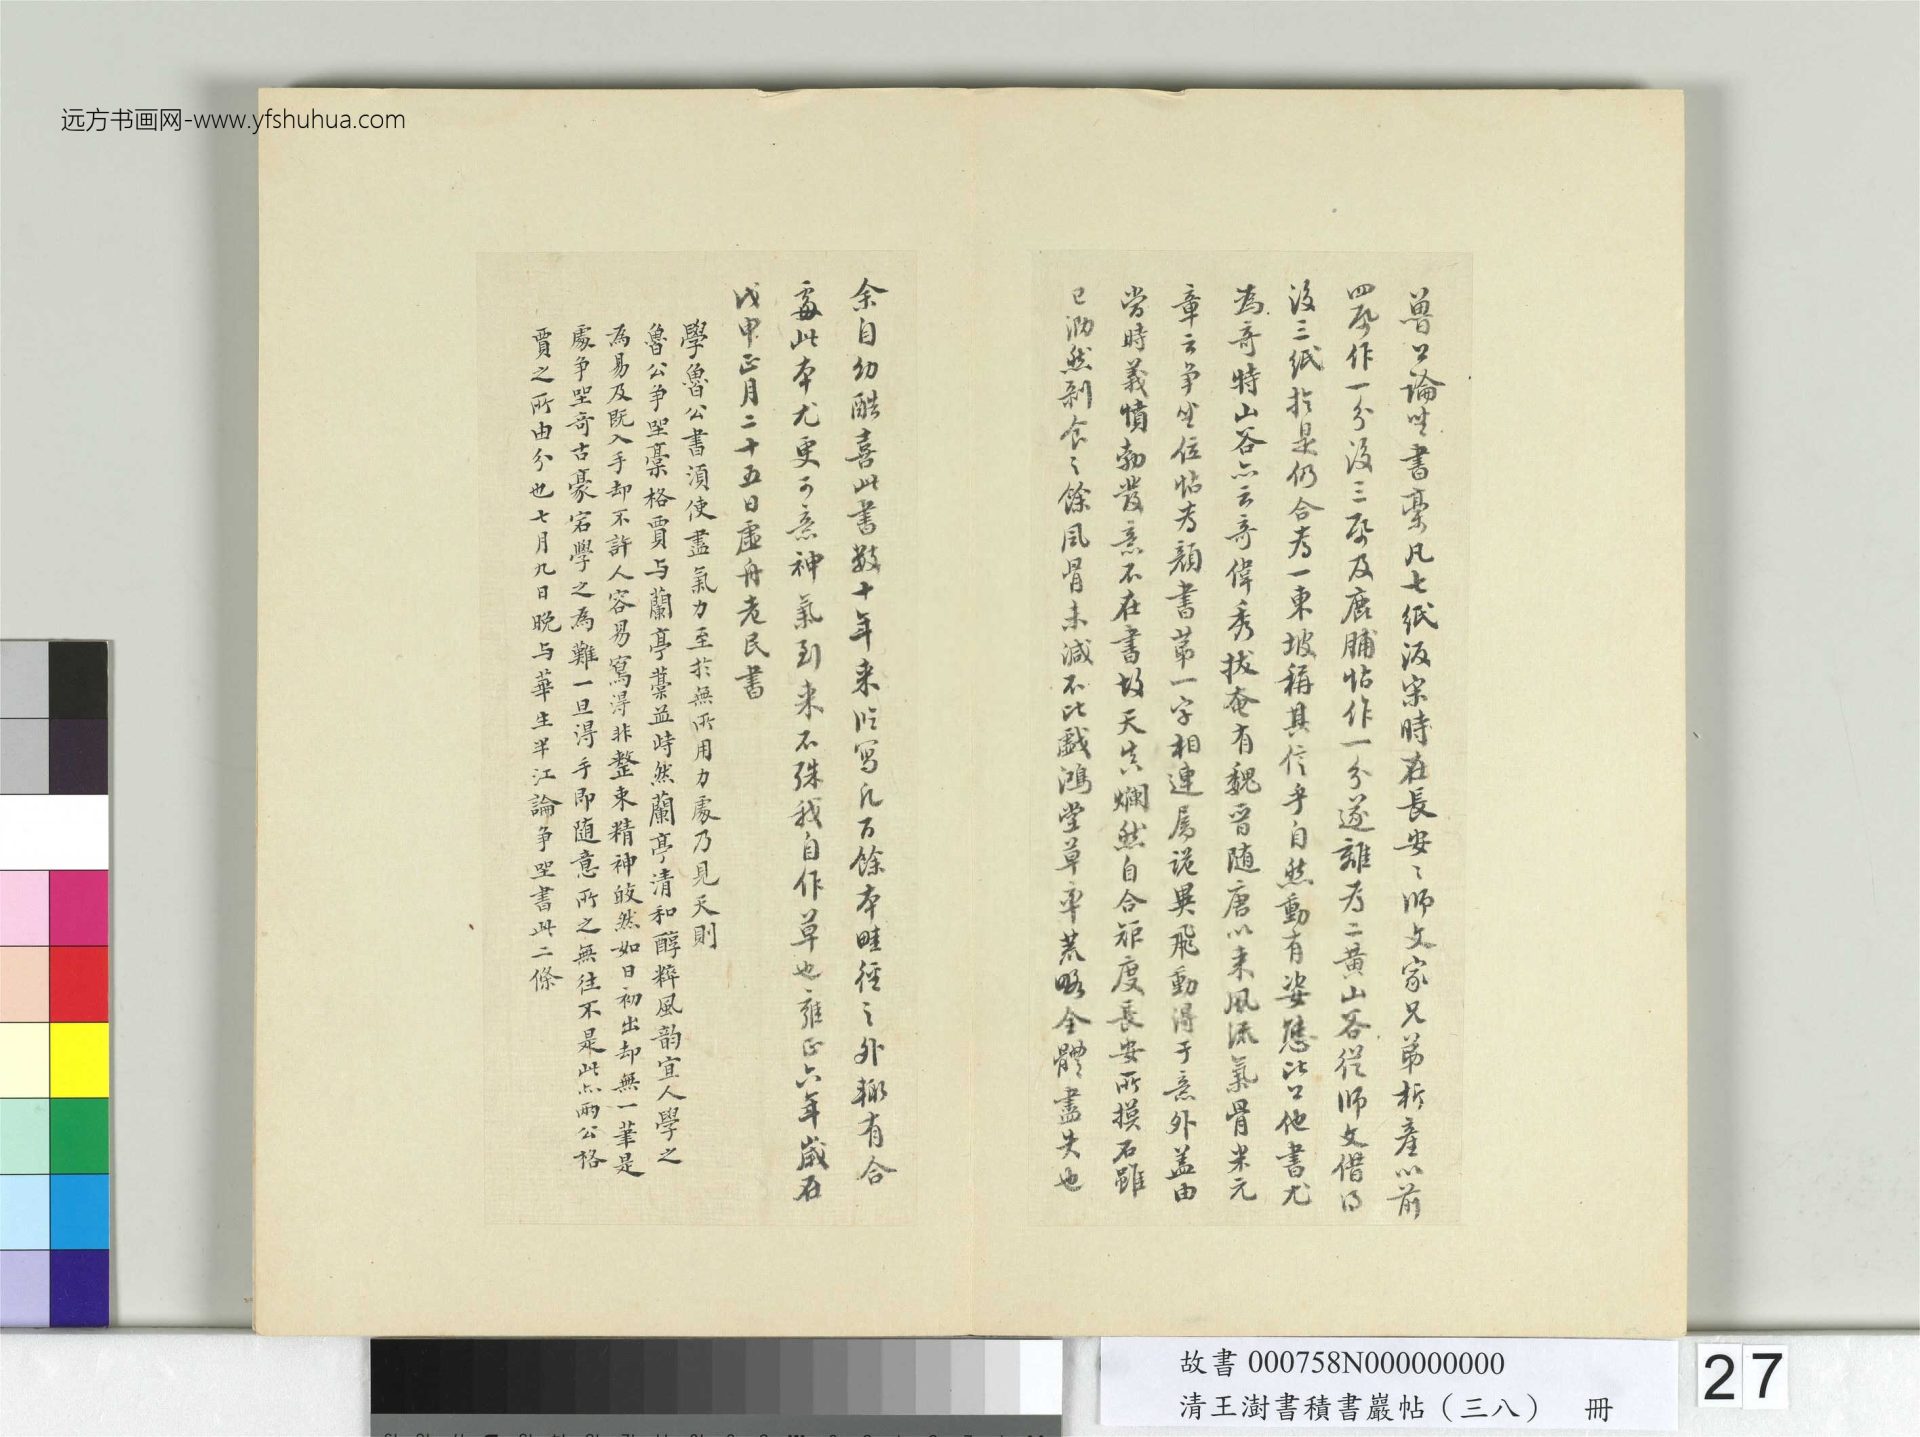 远方书画网-www.yfshuhua.com
魯公論坐書稾凡七紙汳宋時在長安〻師文家兄弟析產以前
四帋作一分後三帋及鹿脯帖作一分遂離為二黃山谷從師文借得
後三紙於是仍合為一東坡稱其信手自然動有姿態比公他書尤
為奇特山谷亦云奇偉秀拔奄有魏晉隨唐以來風流氣骨米元
章云爭坐位帖為顏書第一字相連屬詭異飛動得于意外盖由
當時義憤勃發意不在書故天真爛然自合矩度長安所摸石雖
已泐然剝食之餘風骨未減不比戲鴻堂草率荒略全體盡失也
余自幼酷喜此書數十年来臨寫凡百餘本畦徑之外輙有合
處此本尤更可意神氣到来不殊我自作草也雍正六年歲在
戊申正月二十五日虛舟老民書
學魯公書須使盡氣力至於無所用力處乃見天則
魯公爭坐稾格賈与蘭亭藁並峙然蘭亭清和醇粹風韵宜人學之
為易及既入手却不許人容易寫得非整束精神皎然如日初出却無一筆是
處爭坐奇古豪宕學之為難一旦得手即随意所之無往不是此亦兩公格
賈之所由分也七月九日晚与華生半江論爭坐書此二條
故書 000758N000000000
清王澍書積書巖帖（三八） 冊
27